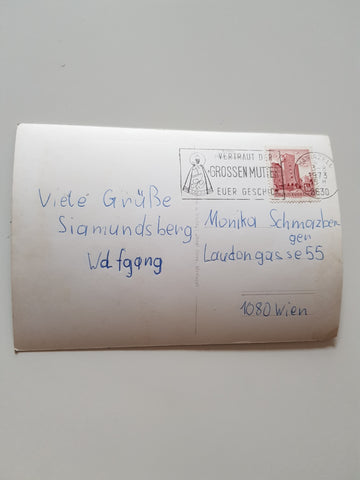 VERTRAUT DER
GROSSEN MUTTER
EUER GESCHICK
1973
8630
Viele Grüße
Sigmundsberg
Wolfgang
Monika Schmarzber
gen
Laudongasse 55
1080 Wien